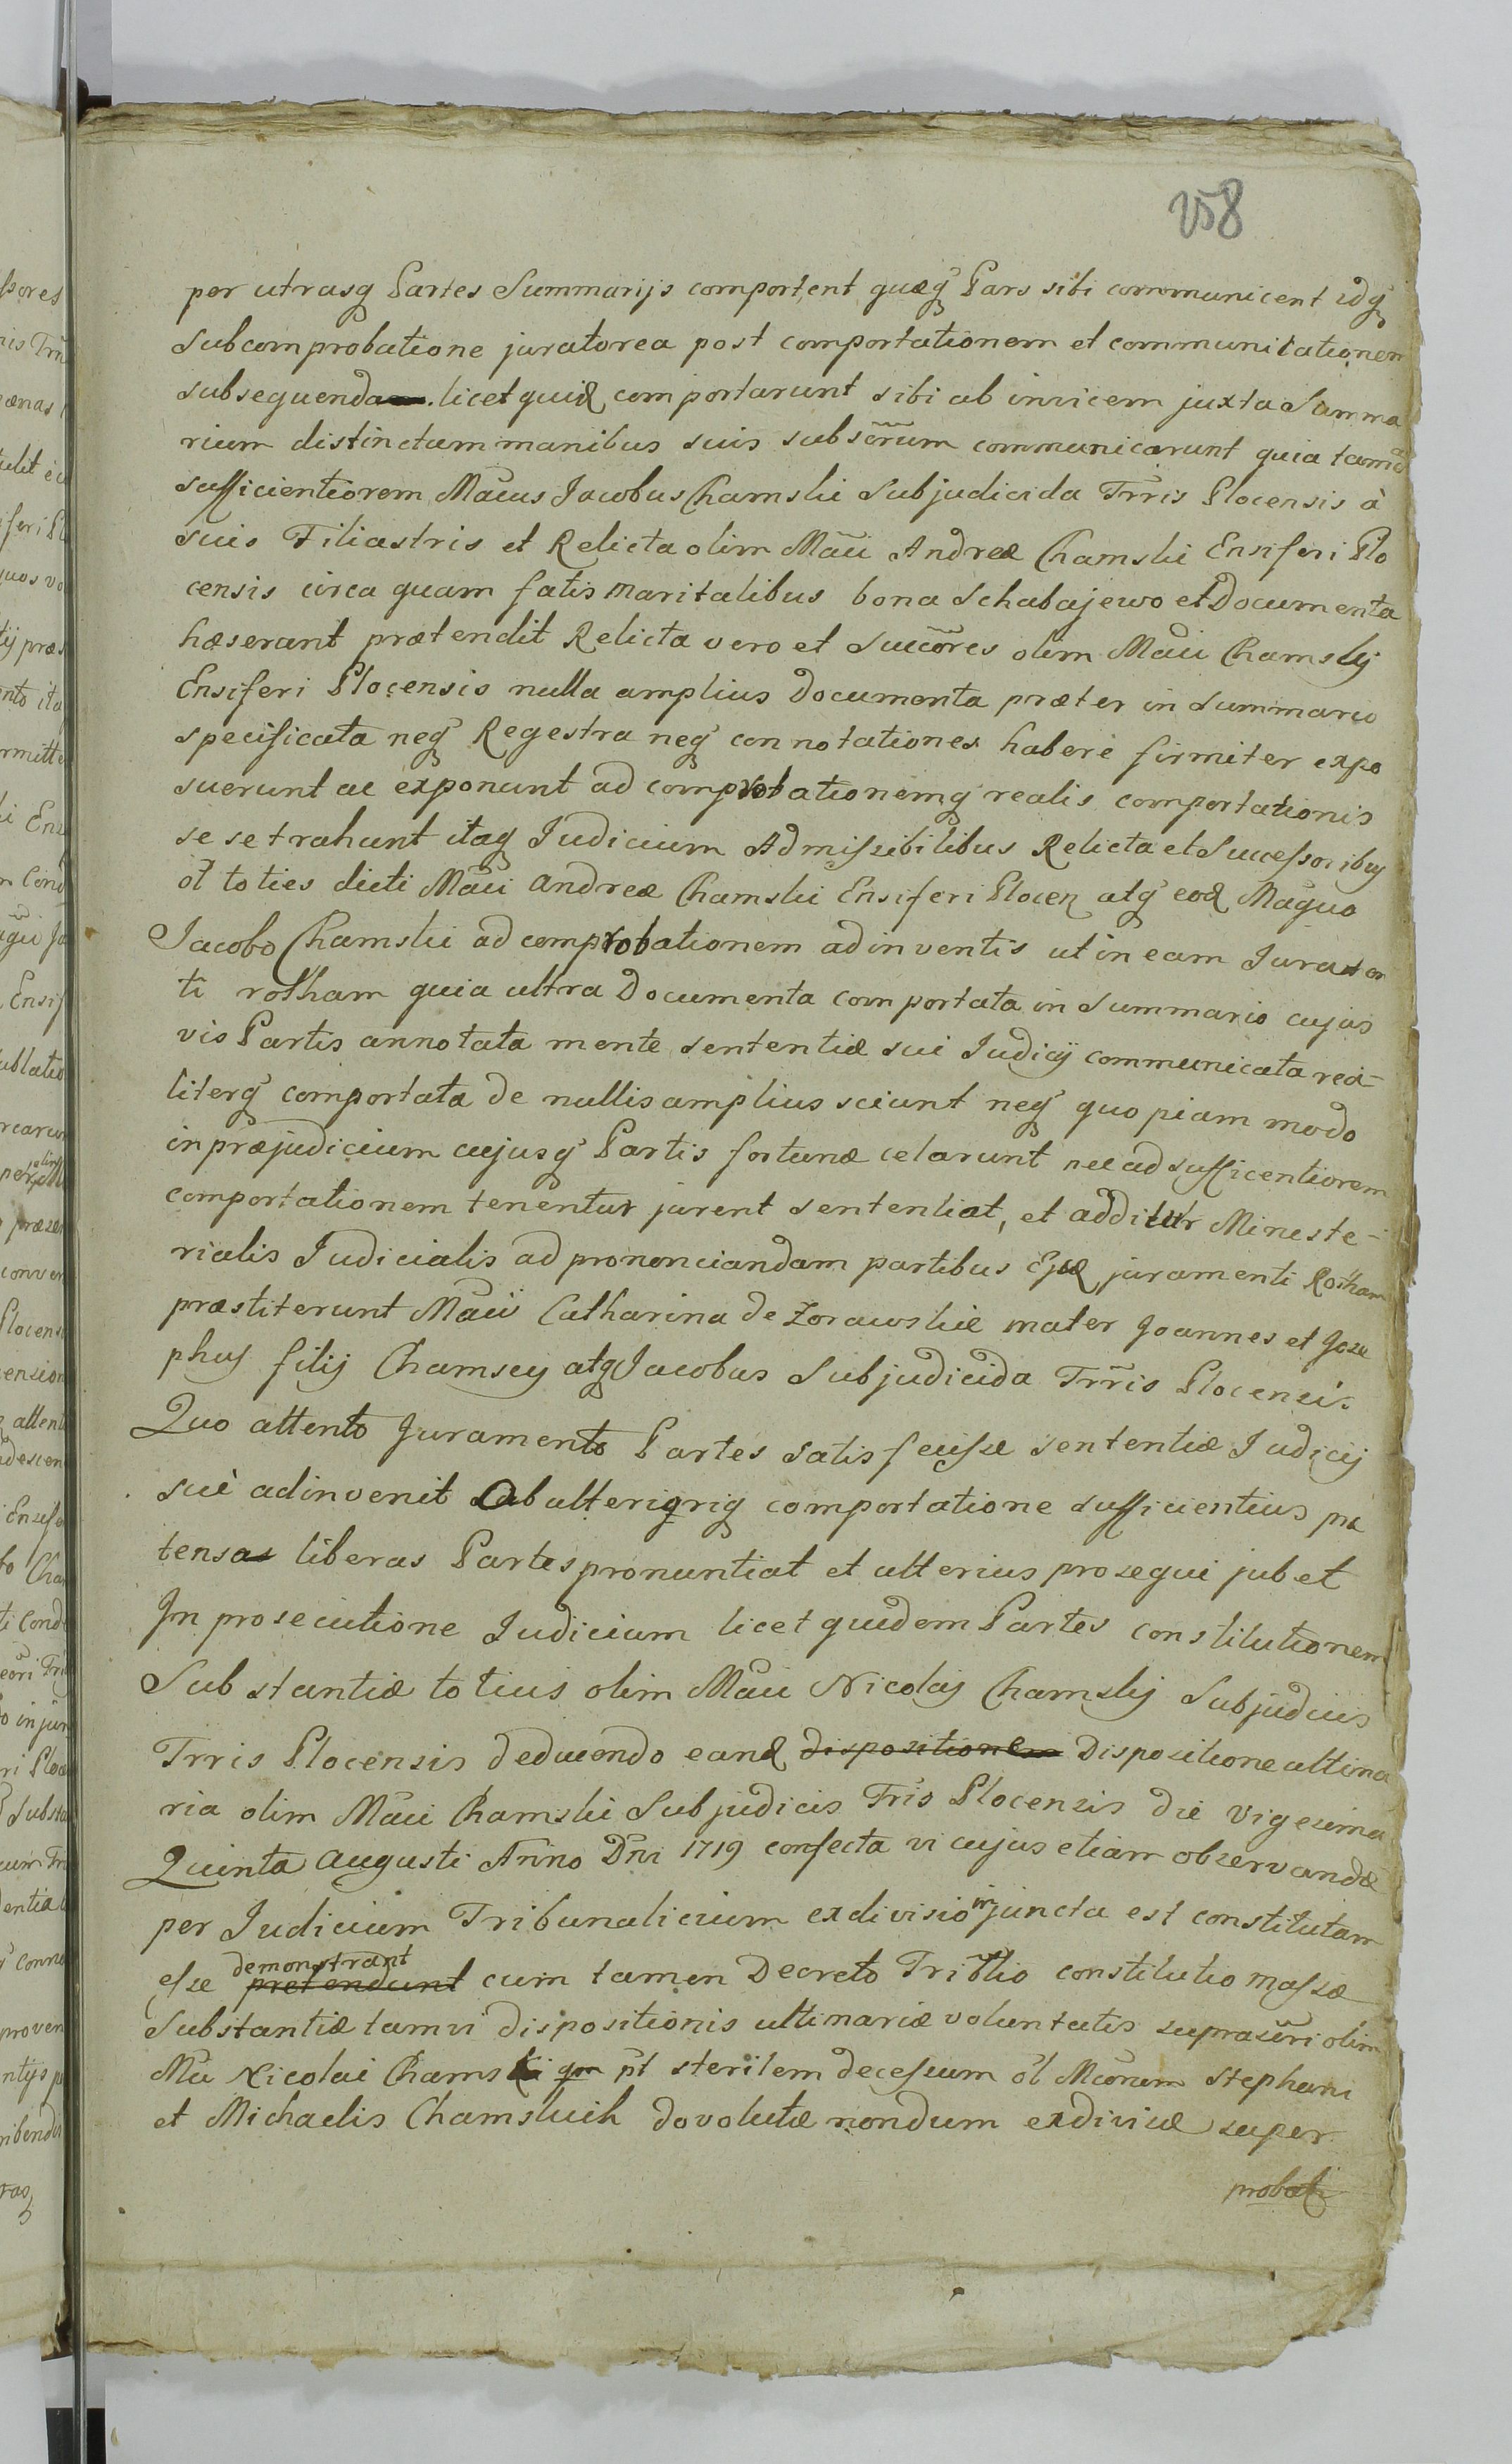 258
per utrasq Partes Summarijs comportent quæq Pars sibi communicent idq
Subcomprobatione juratorea post comportationem et communicationem
subsequenda licet quid comportarunt sibi ab invicem juxta Summa
rium distinctum manibus suis subscrum communicarunt quia tamen
sufficientiorem Mãcus Jacobus Chamski Subjudicida Trris Plocensis à
suis Filiastris et Relicta olim Mãci Andreæ Chamski Ensiferi Plo
censis circa quam fatis maritalibus bona Schabajewo et Documenta
hæserant prætendit Relicta vero et Succõres olim Mãci Chamskij
Ensiferi Plocensis nulla amplius Documenta præter in Summario
specificata neq Regestra neq connotationes habere firmiter expo
suerunt ac exponunt ad comprobationemq realis comportationis
se se trahunt itaq Judicium Admissibilibus Relicta et Successoribus
ol toties dicti Mãci Andreæ Chamski Ensiferi Plocen atq eod Magno
Jacobo Chamski ad comprobationem adinventis ut in eam Jurator
ti rotham quia ultra Documenta comportata in Summario cujus
vis Partis annotata mente sententiæ sui Judicij communicata rea-
literq comportata de nullis amplius sciunt neq quopiam modo
in præjudicium cujusq Partis fortunæ celarunt nec ad sufficentiorem
comportationem tenentur jurent sententiat, et additur Ministe-
rialis Judicialis ad prononciandam partibus juramenti Rotham
præstiterunt Mãci Catharina de Zorawskie mater Joannes et Jose
phus filij Chamscy atq Jacobus Subjudicida Trris Plocensis.
Quo attento Juramento Partes satisfecisse sententiæ Judicij
sui adinvenit ab ulterioriq comportatione sufficientius præ
tensa liberas Partes pronuntiat et ulterius prosequi jubet
In prosecutione Judicium licet quidem Partes constitutionem
Substantiæ totius olim Mãci Nicolaj Chamskij Subjudicis
Trris Plocensis deducendo eand dispositionem Dispositione ultima
ria olim Mãci Chamski Subjudicis Tris Plocensis die vigesima
Quinta Augusti Anno Dni 1719 confecta vi cujus etiam observandæ
per Judicium Tribunalicium exdivisio injuncta est constitutam
esse pretendunt demonstrant cum tamen Decreto Triblio constitutio massæ
Substantiæ tam vi dispositionis ultimariæ voluntatis suprascri olim
Mci Nicolai Chamski qm pt sterilem decessum ol Mcorum Stephani
et Michaelis Chamskich devolutæ nondum exdivisæ super
probati